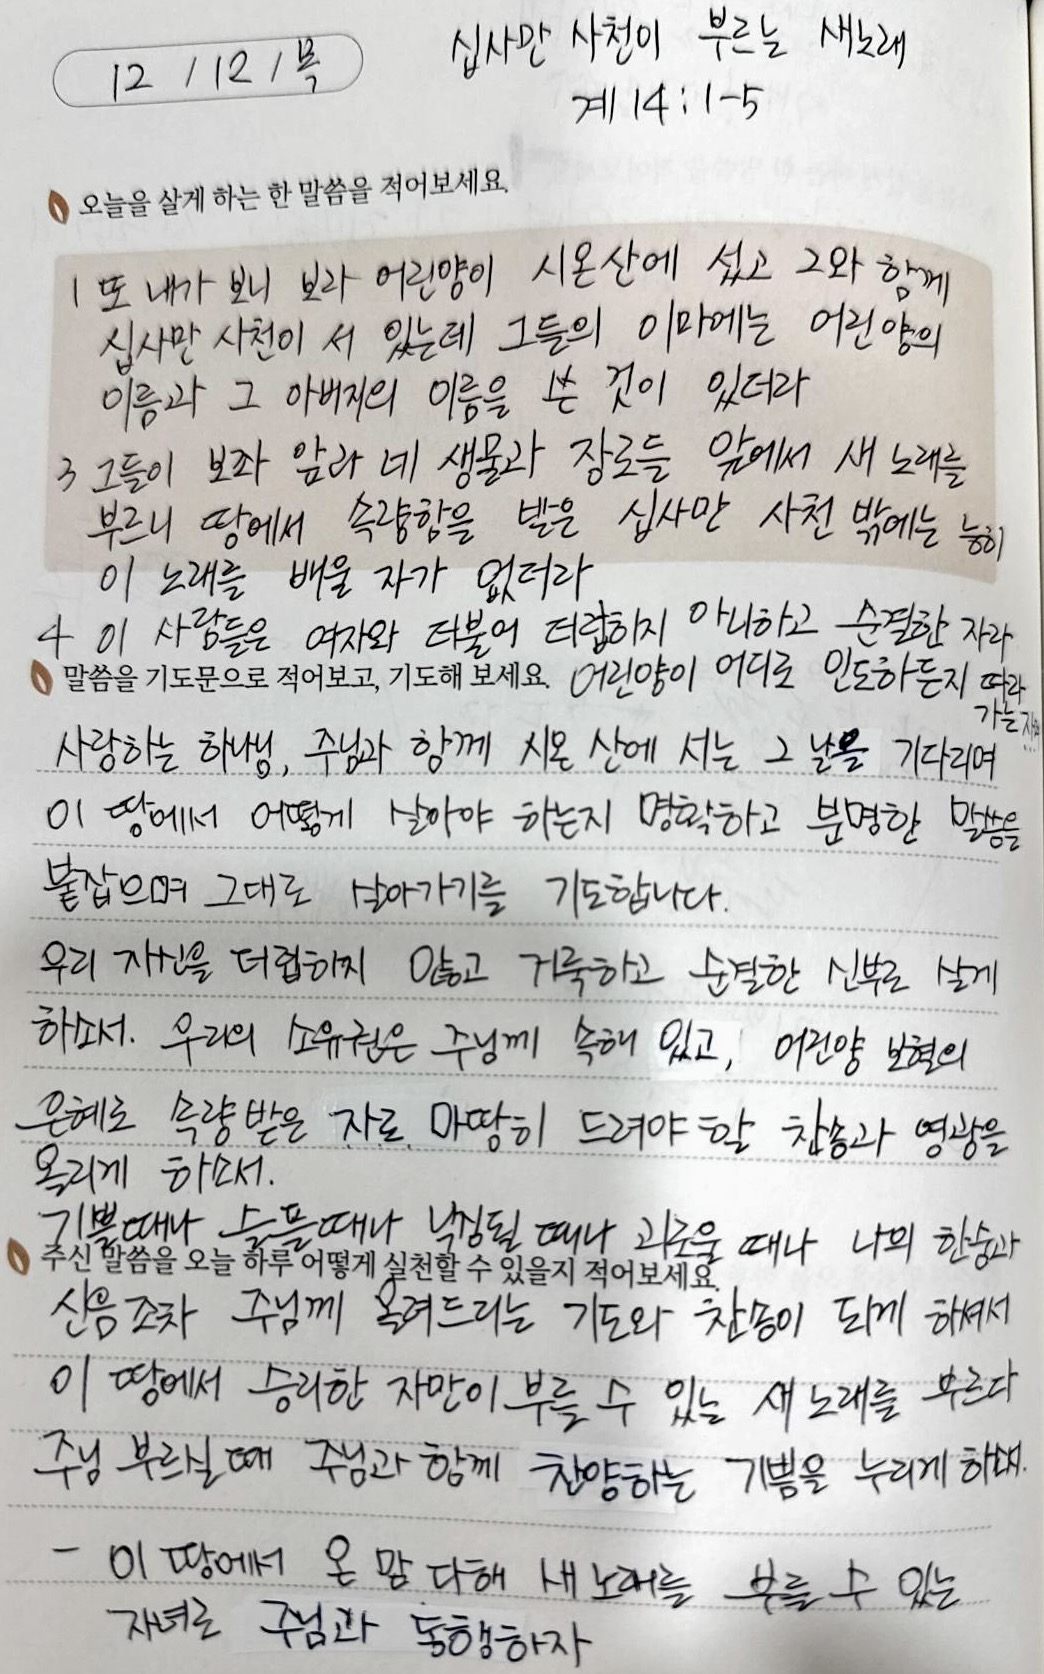 12 / 12 / 목
십사만 사천이 부르는 새노래
계 14 : 1-5
오늘을 살게 하는 한 말씀을 적어보세요.
1 또 내가 보니 보라 어린양이 시온산에 섰고 그와 함께
십사만 사천이 서 있는데 그들의 이마에는 어린양의
이름과 그 아버지의 이름을 쓴 것이 있더라
3 그들이 보좌 앞과 네 생물과 장로들 앞에서 새 노래를
부르니 땅에서 속량함을 받은 십사만 사천 밖에는 능히
이 노래를 배울 자가 없더라
4 이 사람들은 여자와 더불어 더럽히지 아니하고 순결한 자라
어린양이 어디로 인도하든지 따라
가는
말씀을 기도문으로 적어보고, 기도해 보세요.
사랑하는 하나님, 주님과 함께 시온 산에 서는 그 날을 기다리며
이 땅에서 어떻게 살아야 하는지 명확하고 분명한 말씀을
붙잡으며 그대로 살아가기를 기도합니다.
우리 자신을 더럽히지 않고 거룩하고 순결한 신부로 살게
하소서. 우리의 소유권은 주님께 속해 있고, 어린양 보혈의
은혜로 속량 받은 자로 마땅히 드려야 할 찬송과 영광을
올리게 하소서.
기쁠때나 슬플때나 낙심될 때나 괴로울 때나 나의 한숨과
주신 말씀을 오늘 하루 어떻게 실천할 수 있을지 적어보세요.
신음조차 주님께 올려드리는 기도와 찬송이 되게 하셔서
이 땅에서 승리한 자만이 부를 수 있는 새 노래를 부르다
주님 부르실 때 주님과 함께 찬양하는 기쁨을 누리게 하소서.
- 이 땅에서 온 맘 다해 새 노래를 부를 수 있는
자녀로 주님과 동행하자